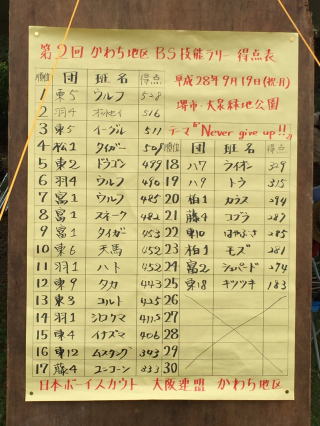 第2回 かわち地区 BS技能ラリー 得点表
平成28年9月19日(祝月)
堺市・大泉緑地公園
テーマ "Never give up!!"
順位 団 班名 得点
1 東5 ウルフ 528
2 羽4 オットセイ 516
3 東5 イーグル 511
4 松1 タイガー 501
5 東2 ドラゴン 499
6 羽4 ウルフ 490
7 富1 ウルフ 485
8 富1 スネーク 482
9 富1 タイガー 453
10 東6 天馬 452
11 羽1 ハト 452
12 東9 タカ 443
13 東3 コルト 425
14 羽1 シロクマ 411.5
15 東4 イナズマ 406
16 東12 ムスタング 343
17 藤4 ユニコーン 333
順位 団 班名 得点
18 八7 ライオン 329
19 八9 トラ 315
20 柏1 カラス 294
21 藤4 コブラ 287
22 東10 はやぶさ 285
23 柏1 モズ 281
24 富2 シェパード 274
25 東18 キツツキ 183
26
27
28
29
30
日本ボーイスカウト 大阪連盟 かわち地区